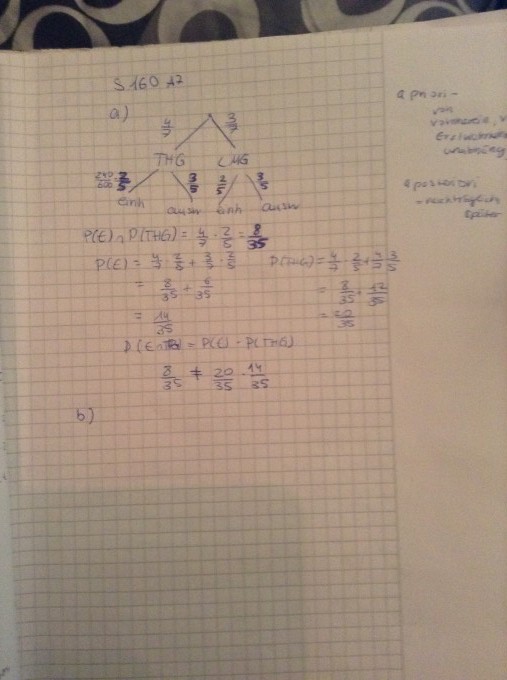 S 160 A7
a)
4/7 3/7
THG LMG
240/600 = 2/5 3/5 2/5 3/5
einh ausw einh ausw
P(E) ∩ P(THG) = 4/7 · 2/5 = 8/35
P(E) = 4/7 · 2/5 + 3/5 · 2/5
= 8/35 + 6/35
= 14/35
P(THG) = 4/7 · 2/5 + 4/7 · 3/5
= 8/35 + 12/35
= 20/35
= P(E) · P(THG)
8/35 ≠ 20/35 · 14/35
b)
a priori -
von
a posteriori
= nachträglich
später